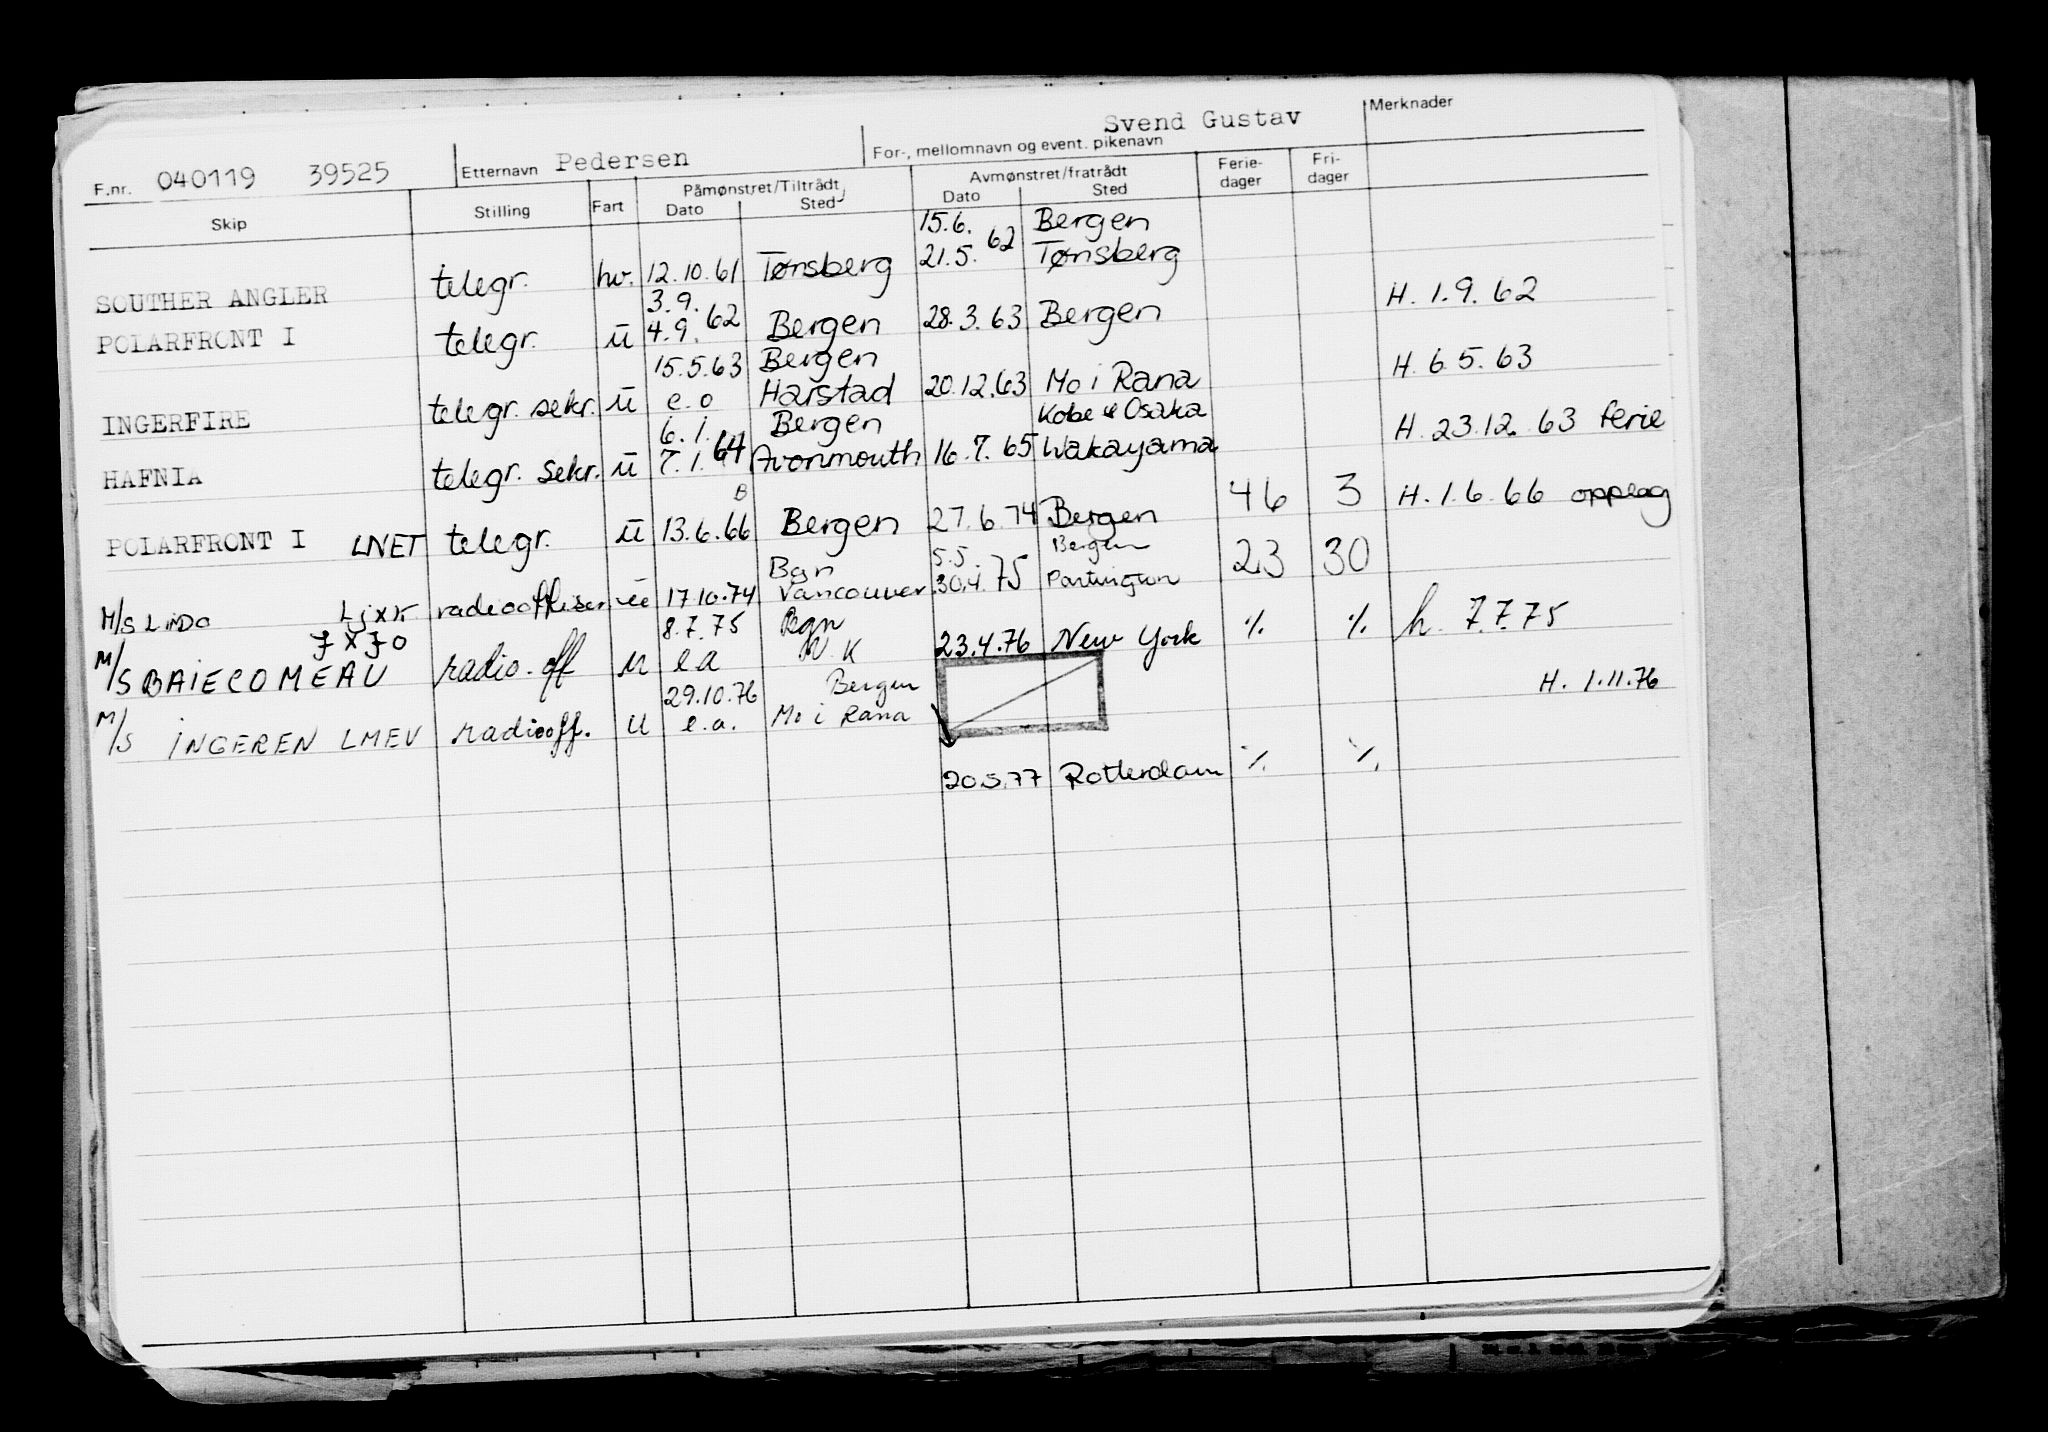 F.nr. 040119 39525 Etternavn Pedersen For-, mellomnavn og event. pikenavn Svend Gustav Merknader
Skip Stilling Fart Påmønstret/Tiltrådt Dato Sted Avmønstret/fratrådt Dato Sted Ferie-dager Fri-dager
15.6. Bergen
SOUTHER ANGLER telegr. hv. 12.10.61 Tønsberg 21.5. 62 Tønsberg
3.9.
POLARFRONT I telegr. u 4.9. 62 Bergen 28.3.63 Bergen H. 1.9.62
15.5.63 Bergen
INGERFIRE telegr. sekr. u e.o Harstad 20.12.63 Mo i Rana H. 6.5.63
6.1. Bergen Kobe & Osaka
HAFNIA telegr. sekr. u 7.1.64 Avonmouth 16.7.65 Wakayama H. 23.12.63 ferie
POLARFRONT I LNET telegr. u 13.6.66 Bergen 27.6.74 Bergen 46 3 H. 1.6.66 opplag
Bgn 5.5. Bergen
M/S LINDO radiooffiser 17.10.74 Vancouver 30.4.75 23 30
JXJO 8.7.75 Bgn
M/S BAIECOMEAU radio.off u e a N.K 23.4.76 New York % % h. 7.7.75
29.10.76 Bergen
M/S INGEREN LMEV radiooff. u e.a. Mo i Rana H. 1.11.76
20.5.77 Rotterdam % %